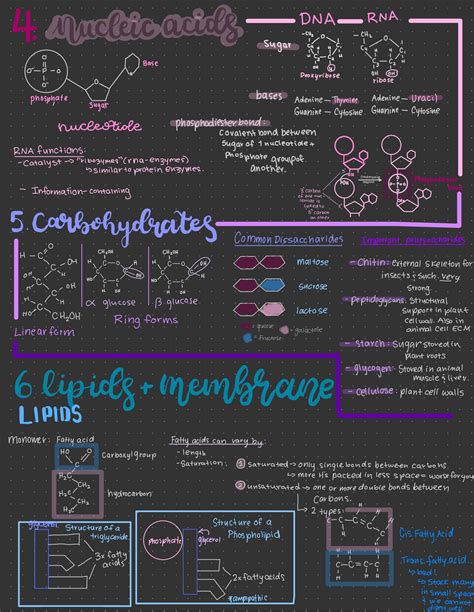 4. Nucleic acids
DNA RNA
Sugar
Deoxyribose ribose
Base
phosphate
Sugar
nucleotide
bases
Adenine — Thymine
Guanine — Cytosine
Adenine — Uracil
Guanine — Cytosine
phosphodiester bond:
Covalent bond between
sugar of 1 nucleotide +
phosphate group of
another.
RNA functions:
- Catalyst → "ribozymes" (rna-enzymes)
↳ similar to protein enzymes.
- Information-containing
5. Carbohydrates
Linear form
α glucose
β glucose
Ring forms
Common Dissaccharides
maltose
sucrose
lactose
= glucose
= fructose
= galactose
Important polysaccharides
- Chitin: external skeleton for
insects & such, very
strong.
- Peptidoglycans: Structural
support in plant
cell wall. Also in
animal cell ECM
- starch: Sugar stored in
plant roots
- glycogen: Stored in animal
muscle & liver.
- cellulose: plant cell walls
6 lipids + membrane
LIPIDS
Monomer: Fatty acid
Carboxyl group
hydrocarbon
Fatty acids can vary by:
- length
- Saturation:
1 saturated → only single bonds between carbons
↳ more H's packed in less space = worse for you
2 unsaturated → one or more double bonds between
Carbons.
↳ 2 types:
Cis Fatty Acid
Trans fatty acid
↳ bad!
glycerol
Structure of a
triglyceride
3x fatty
acids
Structure of a
Phospholipid
phosphate
glycerol
2x fatty acids